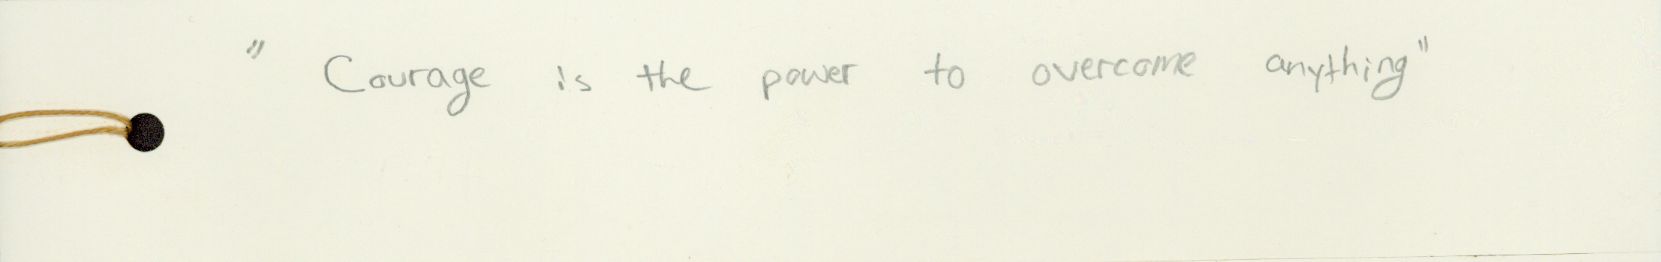 " Courage is the power to overcome anything"